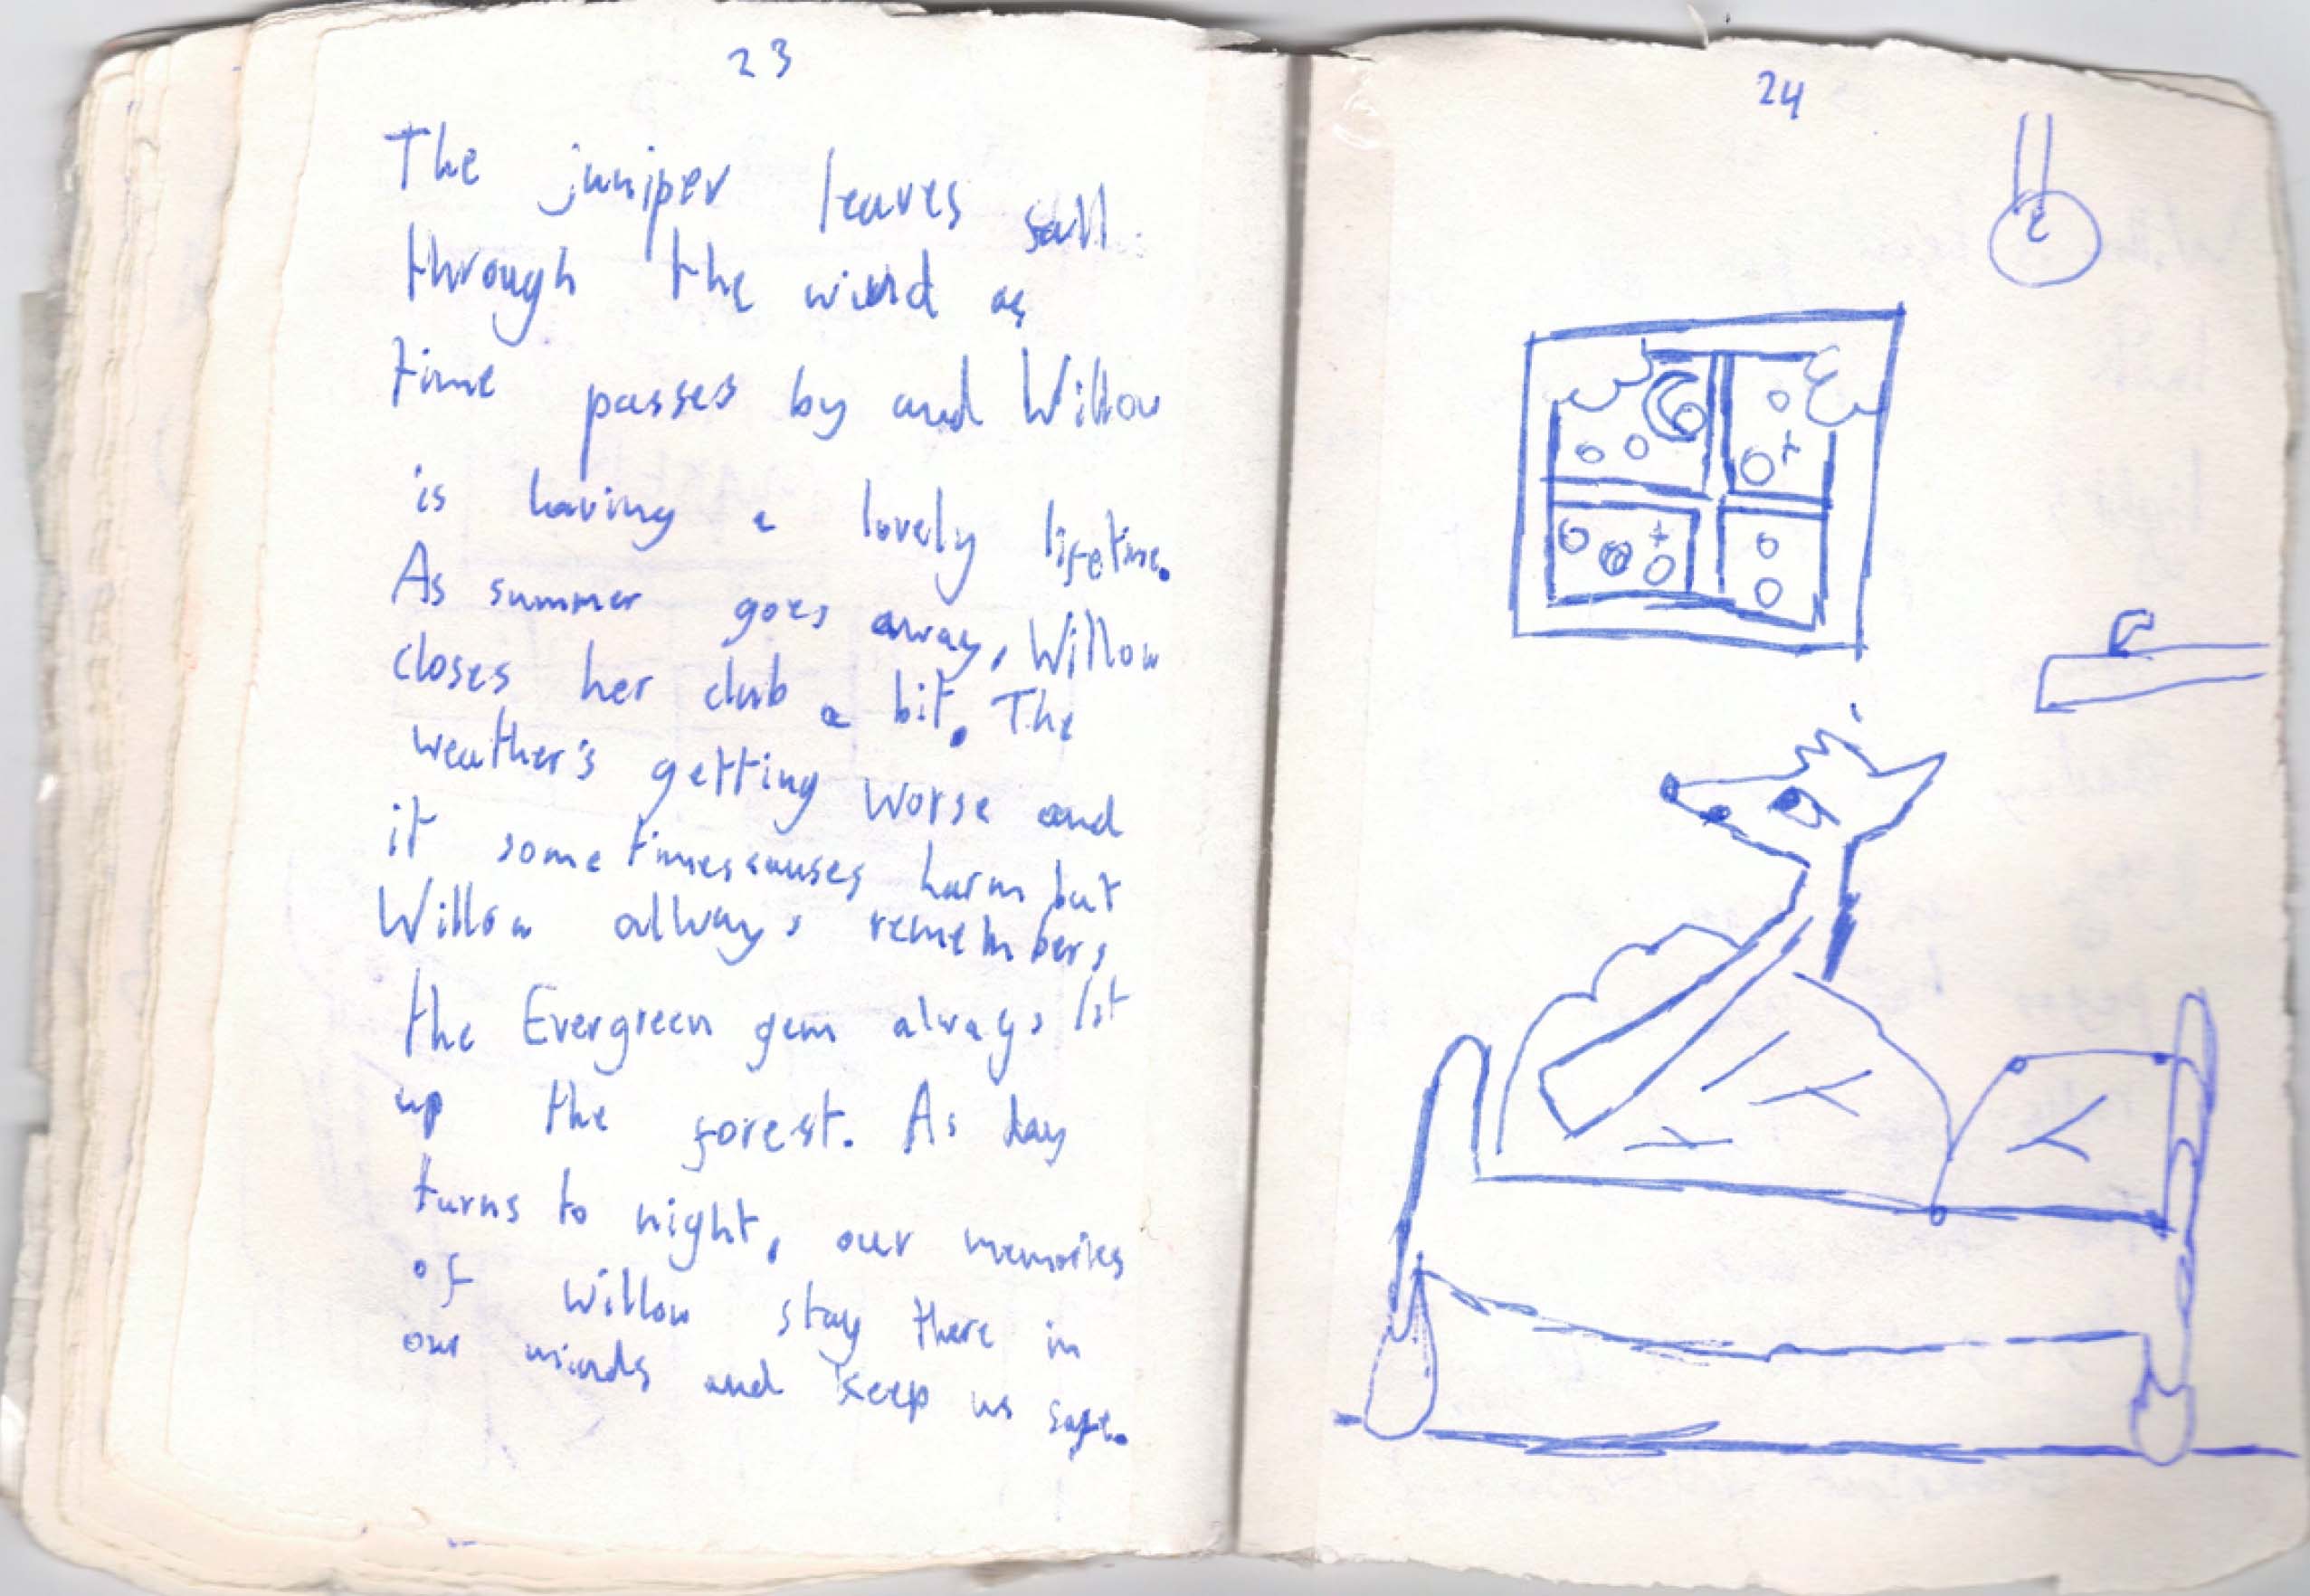 23
The juniper leaves sall
through the wind as
time passes by and Willow
is having a lovely lifetime.
As summer goes away, Willow
closes her club a bit. The
weather's getting worse and
it sometimes causes harm but
Willow always remembers,
the Evergreen gem always lst
up the forest. As day
turns to night, our memories
of Willow stay there in
our minds and keep us safe.
24